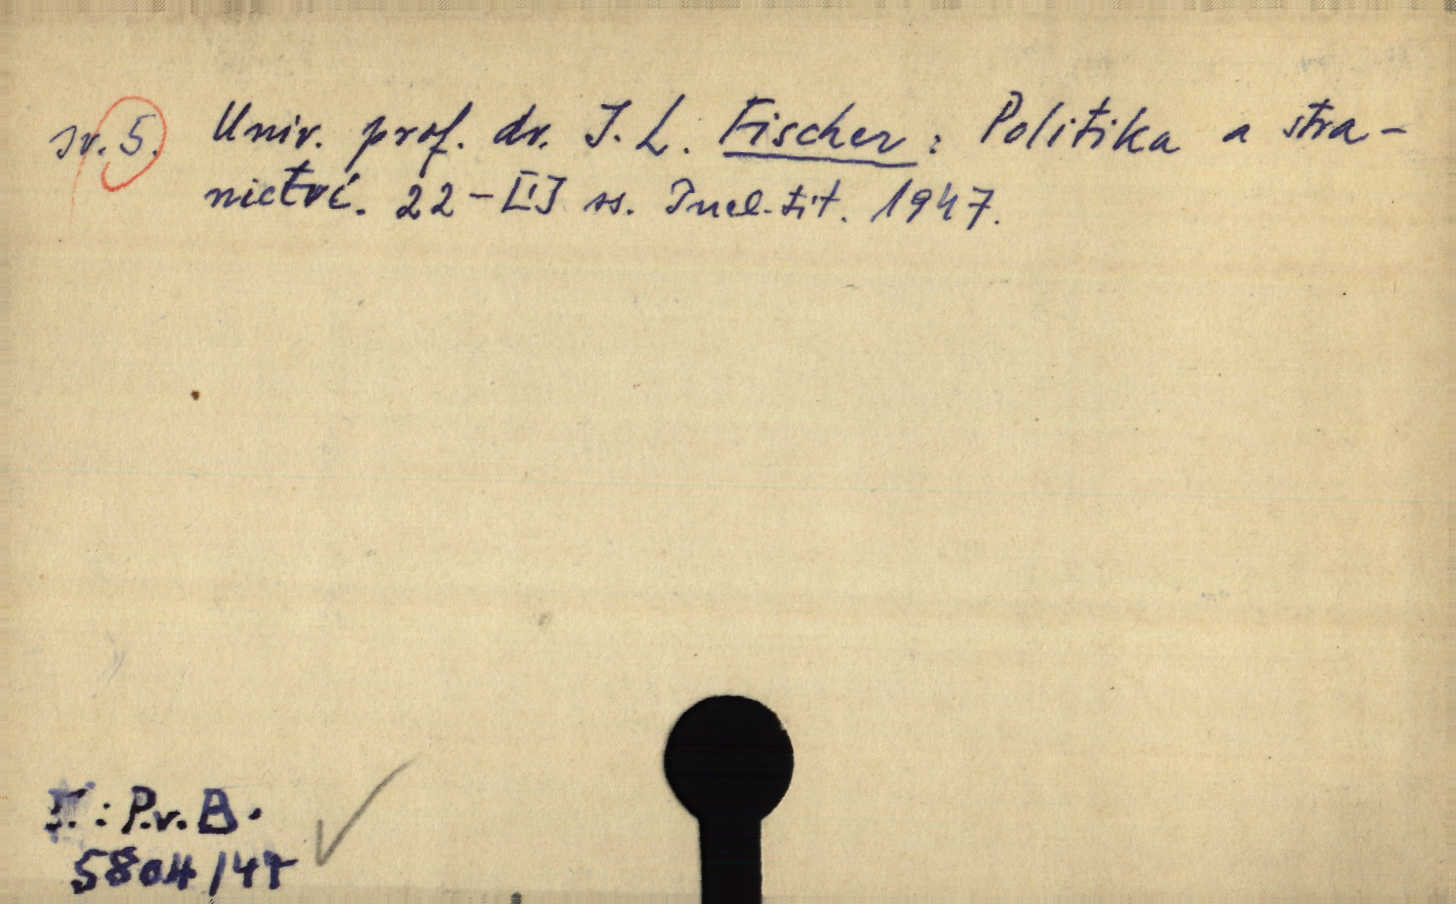 sv. 5. Univ. prof. dr. J. L. Fischer: Politika a stra-
nictví. 22-[I] ss. Incl. tit. 1947.
I.: P.v.B.
5804/47